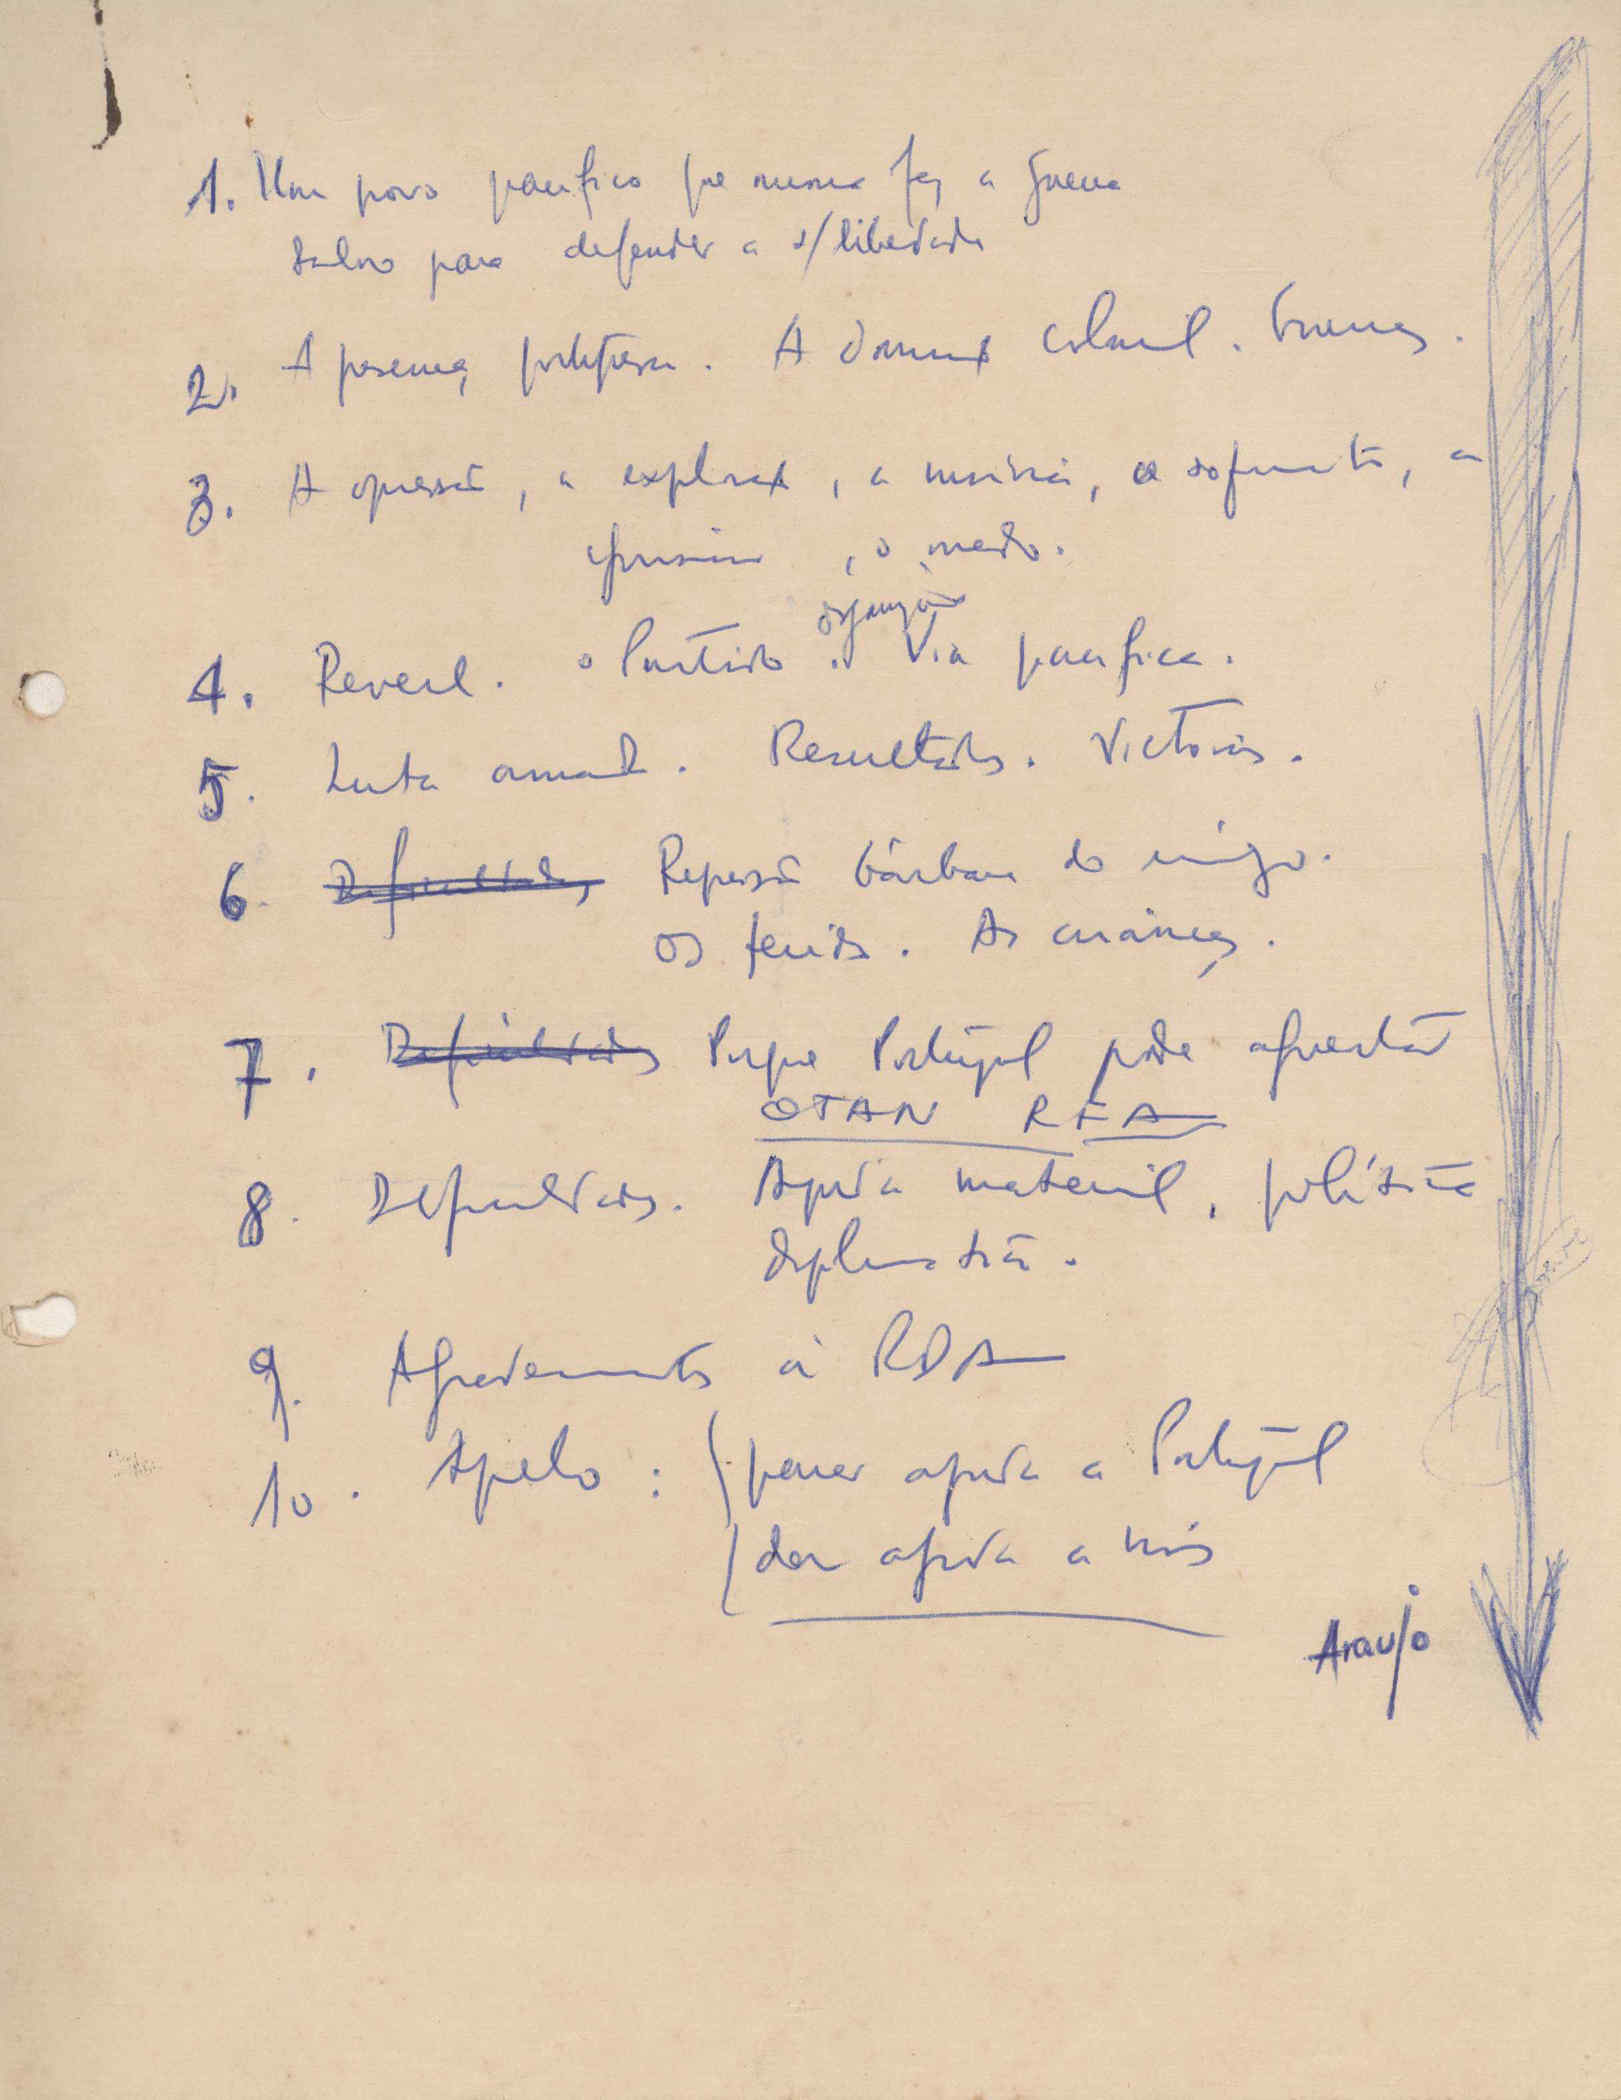 1. Um povo pacifico que nunca fez a guerra
salvo para defender a s/ liberdade
2. A presença portuguesa. A domin. colonial. Guerras.
3. A opressão, a explor., a miséria, o sofrimento, a
, o medo.
organização
4. Revol. o Partido. Via pacifica.
5. Luta armada. Resultados. Victorias.
6. Dificuldades Repressão bárbara do inimigo.
Os feridos. As crianças.
7. Dificuldades Porque Portugal pode aguentar
OTAN RFA
8. Dificuldades. Ajuda material, política
diplomática.
9. Agradecimentos à RDA
10. Apelo: ajuda a Portugal
dar ajuda a nós
Araujo